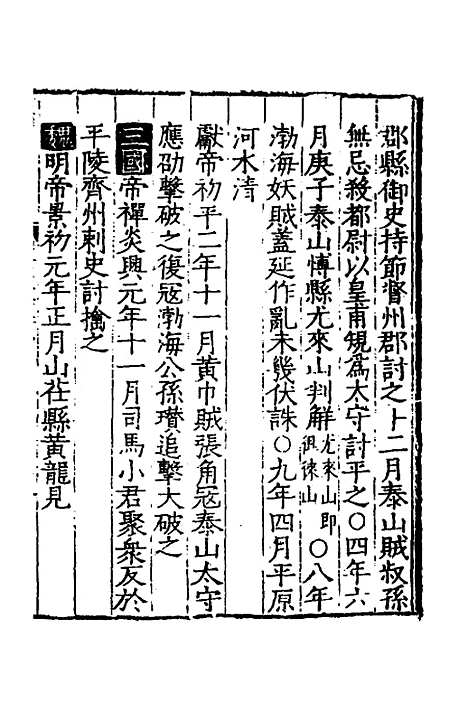 郡縣御史持節督州郡討之十二月泰山賊叔孫
無忌殺都尉以皇甫規為太守討平之○四年六
月庚子泰山博縣尤來山判解尤來山即徂徠山○八年
渤海妖賊蓋延作亂未幾伏誅○九年四月平原
河水清
獻帝初平二年十一月黃巾賊張角寇泰山太守
應劭擊破之復寇渤海公孫瓚追擊大破之
三國帝禪炎興元年十一月司馬小君聚衆反於
平陵齊州刺史討擒之
魏明帝景初元年正月山茌縣黃龍見